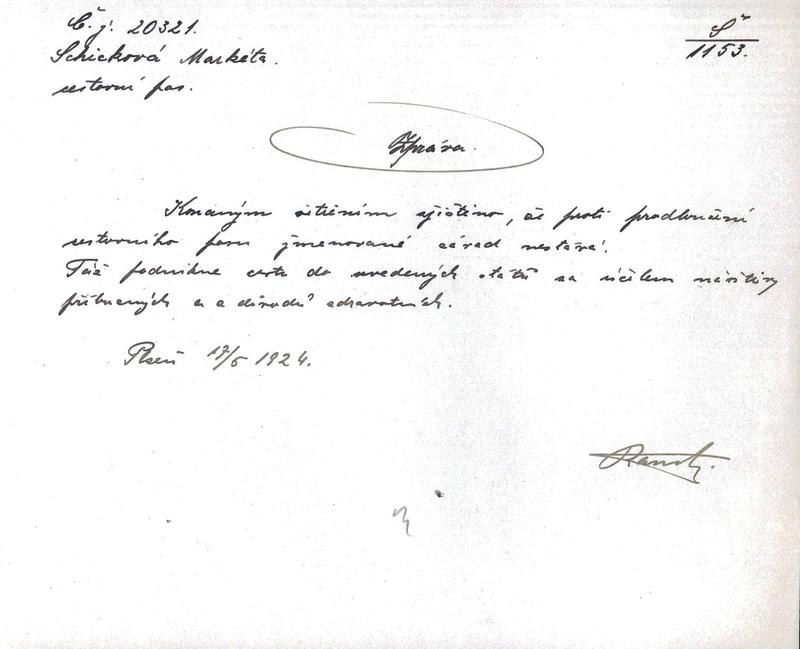 Č. j. 20321.
Š
1153.
Schicková Markéta.
cestovní pas.
Zpráva.
Konaným šetřením zjištěno, že proti prodloužení
cestovního pasu jmenované závad nestává.
Táž podnikne cestu do uvedených států za účelem návštěvy
příbuzných a z důvodů zdravotních.
Plzeň 17/5 1924.